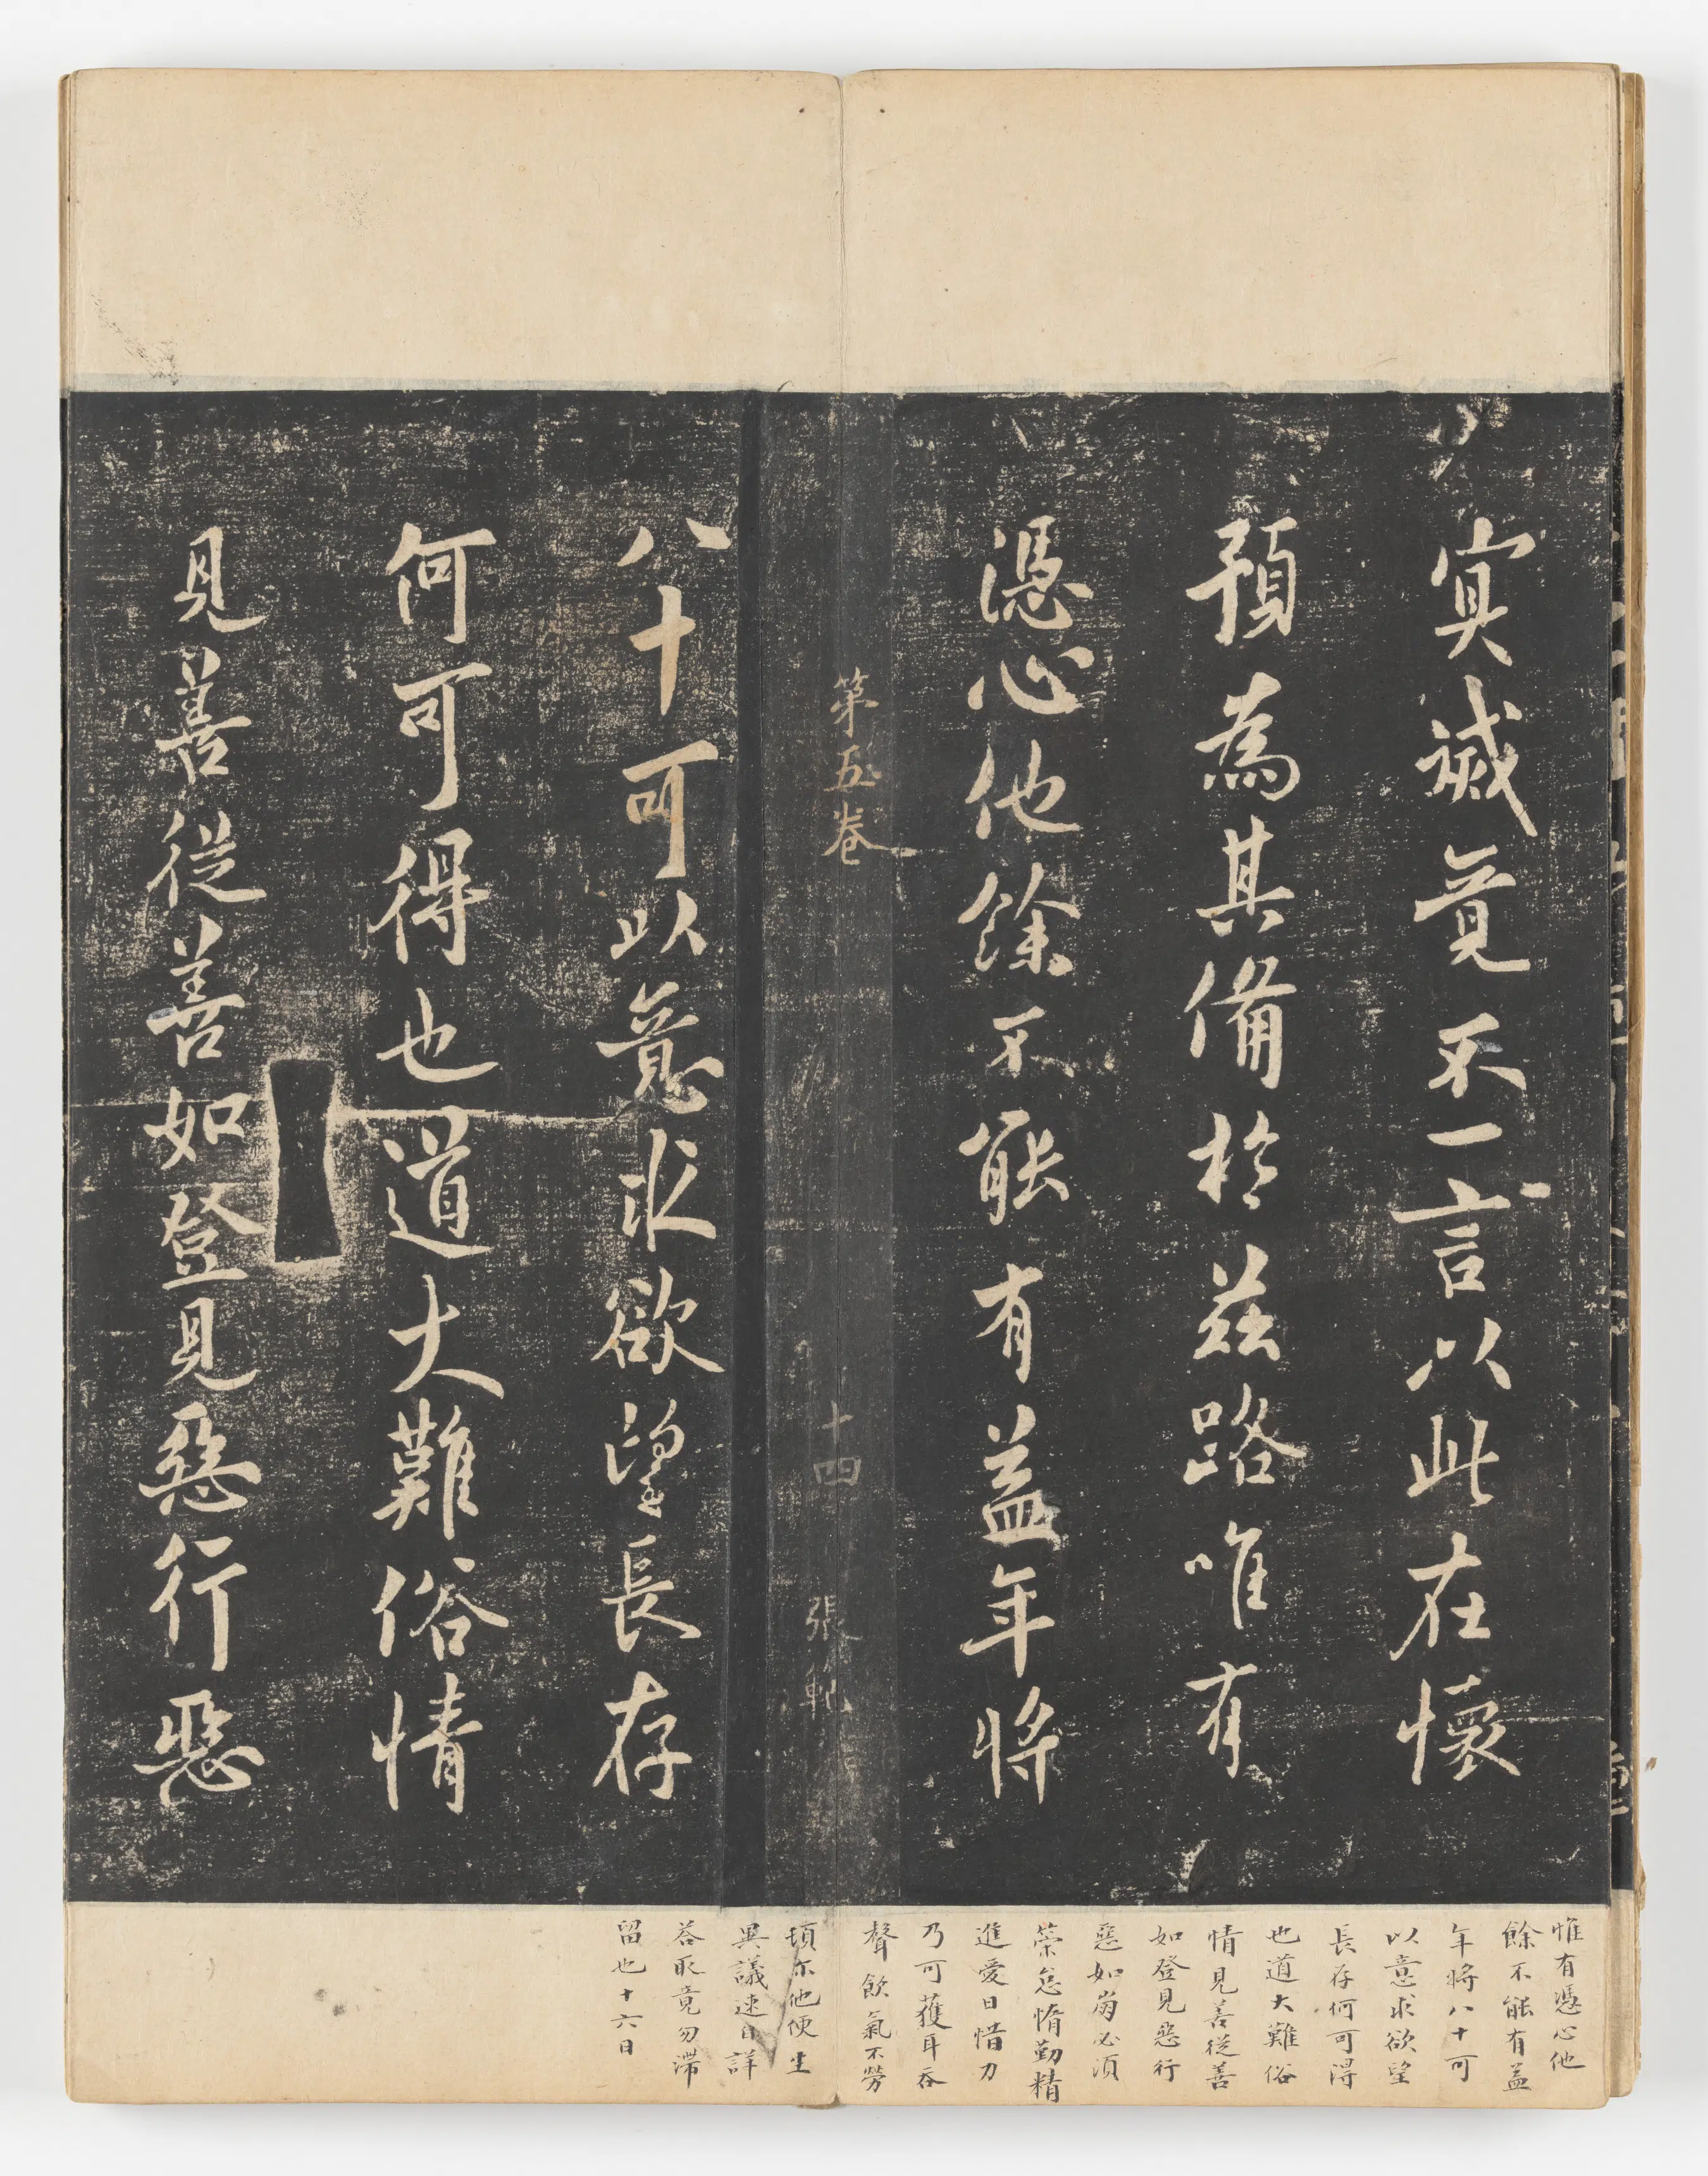 冥滅竟不一言以此在懷
預為其備於茲路唯有
憑心他餘不能有益年將
第五卷
十四
張軏
八十可以意求欲望長存
何可得也道大難俗情
見善從善如登見惡行惡
惟有憑心他
餘不能有益
年將八十可
以意求欲望
長存何可得
也道大難俗
情見善從善
如登見惡行
惡如崩必須
榮怠惰勤精
進愛日惜力
乃可獲耳吞
聲飲氣不勞
頓尔他便生
異議速自詳
荅取竟勿滯
留也十六日